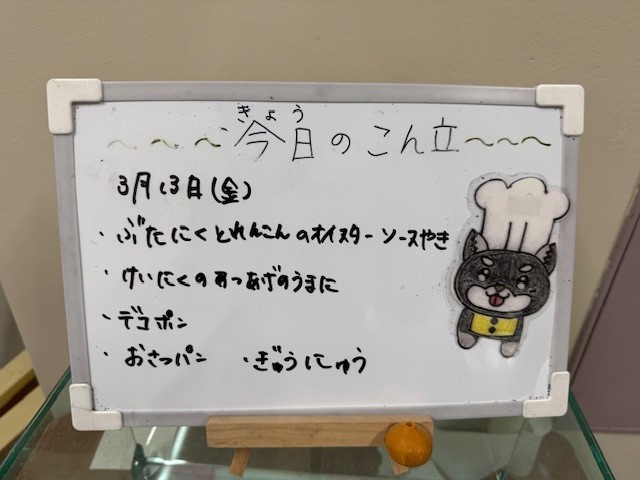 きょう
～～～今日のこん立～～～
3月13日(金)
・ぶたにくとれんこんのオイスターソースやき
・けいにくのみつあげのうまに
・デコポン
・おさつパン ・ぎゅうにゅう